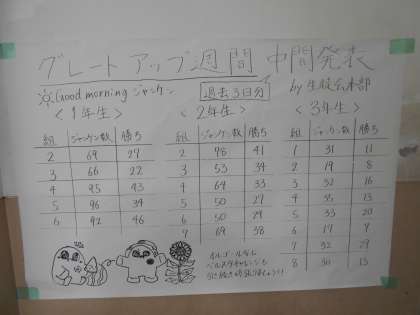 グレートアップ週間 中間発表
☼Good morning ジャンケン 過去3日分 by 生徒会本部
<1年生> <2年生> <3年生>
組 ジャンケン数 勝ち 組 ジャンケン数 勝ち 組 ジャンケン数 勝ち
2 69 27 2 78 41 1 31 11
3 66 22 3 53 34 2 19 8
4 95 43 4 64 33 3 32 16
5 96 34 5 50 27 4 35 13
6 92 46 6 50 29 5 33 20
9 69 38 6 17 9
7 32 29
8 30 13
オルゴールなし
ベル スタチャレンジも